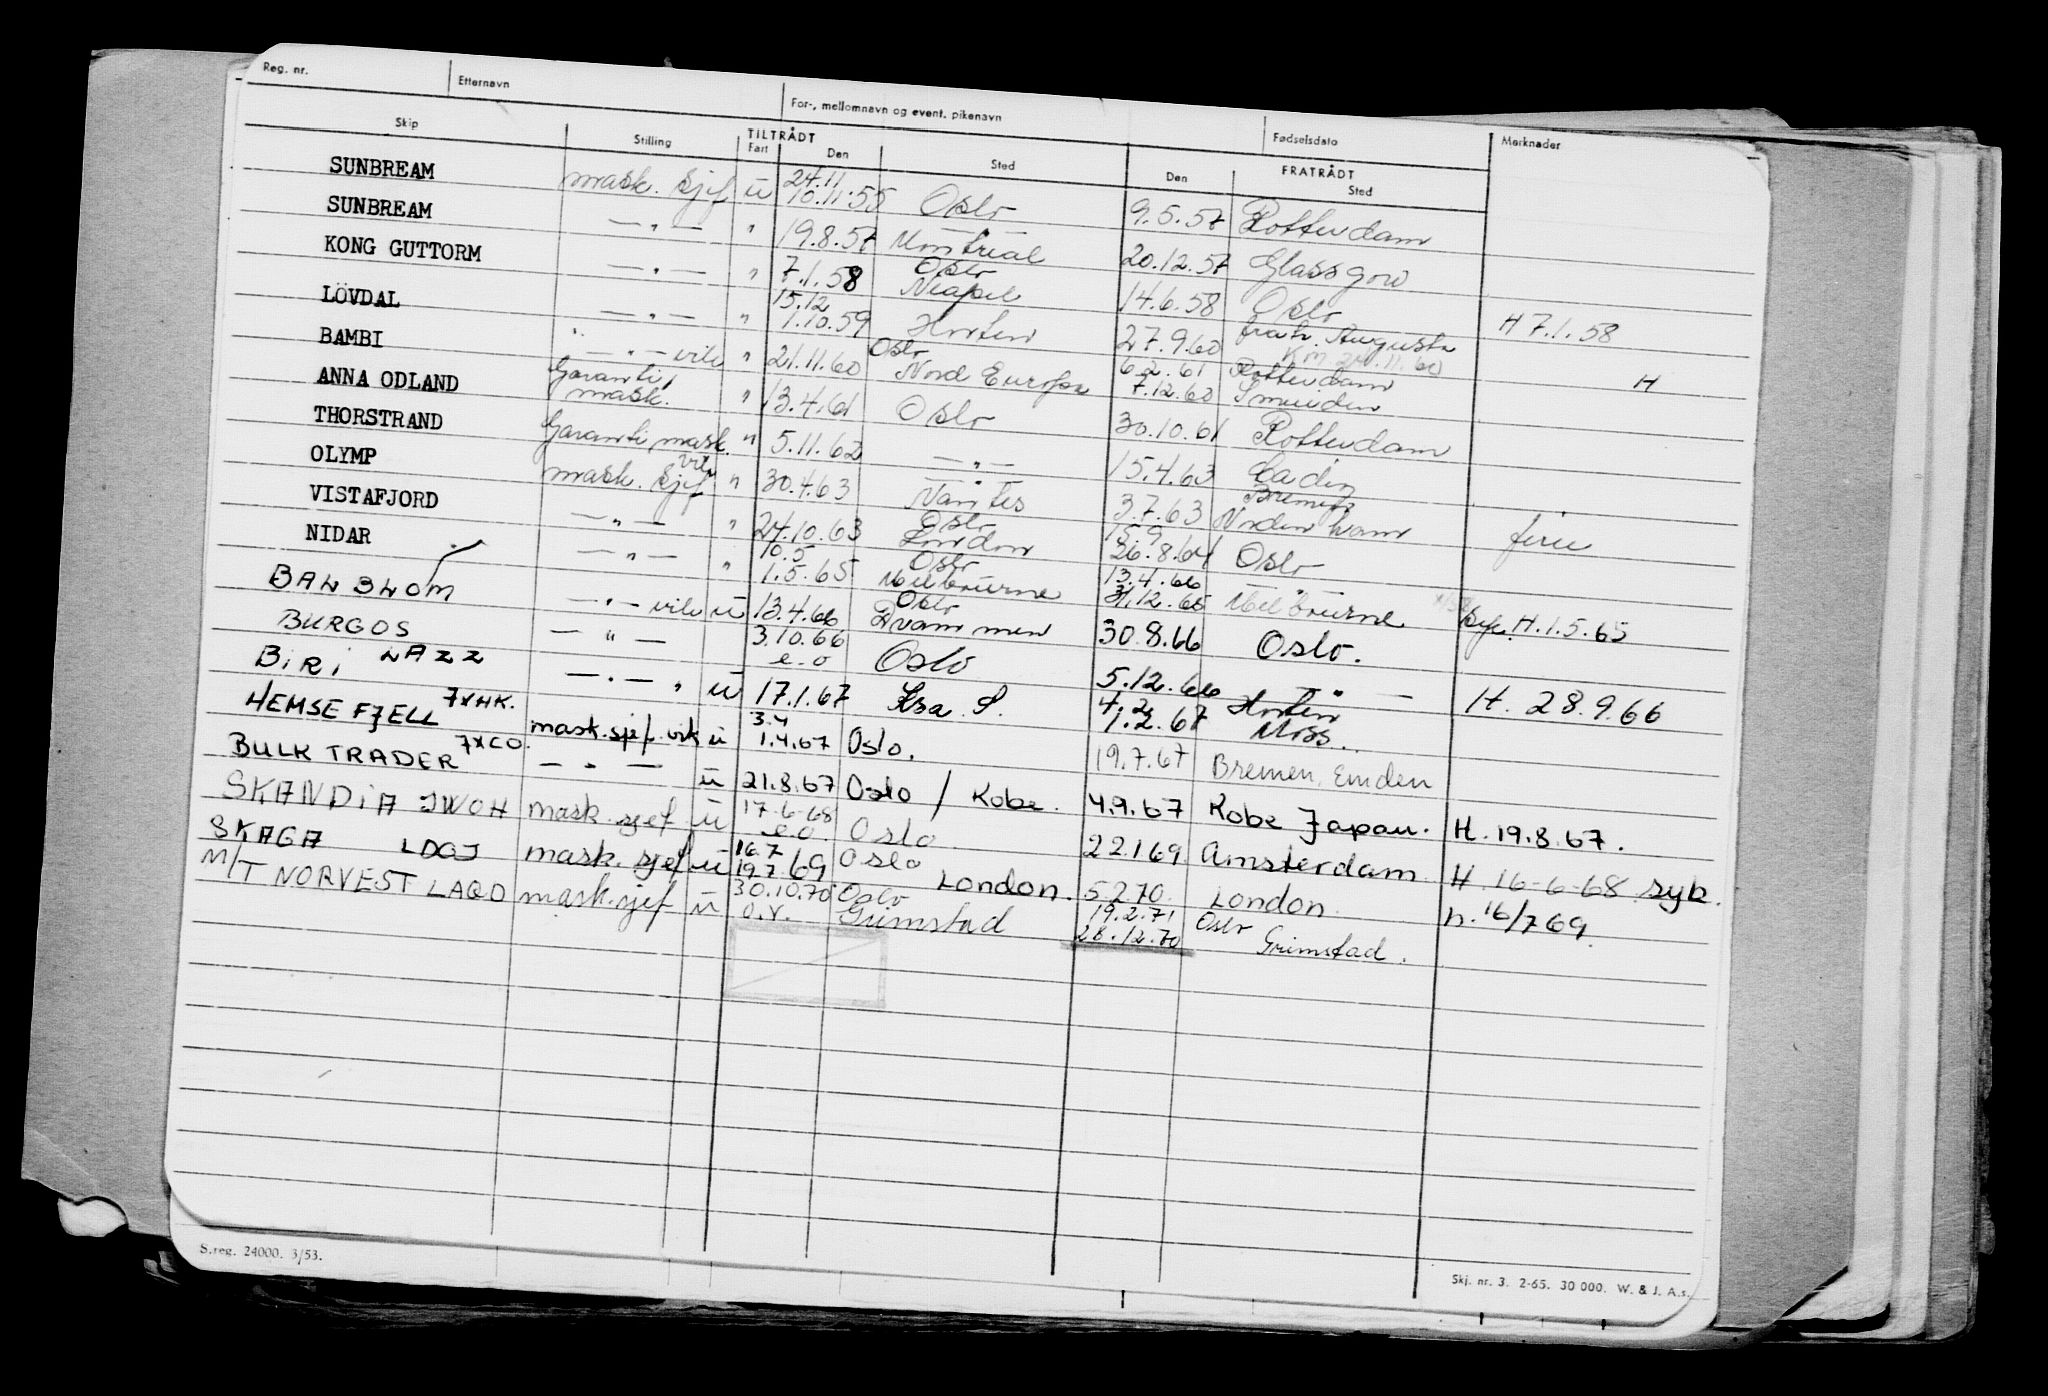 Reg. nr. Etternavn For-, mellomnavn og event. pikenavn Fødselsdato Merknader
Skip Stilling TILTRÅDT Fart Den Sted FRATRÅDT Den Sted
SUNBREAM mask. sjef u 24.11 10.11.55 Oslo 9.5.57 Rotterdam
SUNBREAM — " — " 19.8.57 Montreal 20.12.57 Glassgow
KONG GUTTORM — " — " 7.1.58 Oslo Neapel 14.6.58 Oslo H 7.1.58
LÖVDAL — " — " 15.12 1.10.59 Horten 27.9.60 Augusta
BAMBI — " — vik " 21.11.60 Oslo Nord Europa 6.2.61 7.12.60 Rotterdam H
ANNA ODLAND Garanti mask. " 13.4.61 Oslo 30.10.61 Rotterdam
THORSTRAND Garanti mask. " 5.11.62 — " — 15.4.63 Cadiz
OLYMP mask. sjef vik " 30.4.63 — " — Nantes 3.7.63 Bremen Nordenham ferie
VISTAFJORD — " — " 24.10.63 Oslo London 15.9 26.8.64 Oslo
NIDAR — " — " 10.5 1.5.65 Oslo Melbourne 13.4.66 31.12.65 — " — Melbourne H. 1.5.65
BALBLOM — " — vik u 13.4.66 Oslo Drammen 30.8.66 Oslo.
BURGOS — " — 3.10.66 e.o Oslo 5.12.66 — " — H. 28.9.66
BIRI LAZZ — " — " u 17.1.67 Kra. S. 4.2 1.2.67 Horten Moss.
HEMSEFJELL 7XHK. mask. sjef. vik u 3.4 1.4.67 Oslo. 19.7.67 Bremen, Emden
BULK TRADER 7XCO. — " — u 21.8.67 Oslo / Kobe. 4.9.67 Kobe Japan. H. 19.8.67.
SKANDIA JWOH mask. sjef u 17-6-68 e.o Oslo 22.1 69 Amsterdam H. 16-6-68 syk.
SKAGA LDOJ mask. sjef u 16.7 19.7.69 Oslo London. 5 2 70. London. h. 16/7 69.
M/T NORVEST LAQD mask. sjef u 30.10.70 o.v. Oslo Grimstad 19.2.71 28.12.70 Oslo Grimstad.
S.reg. 24000. 3/53. Skj. nr. 3. 2-65. 30 000. W. & J. A.s.